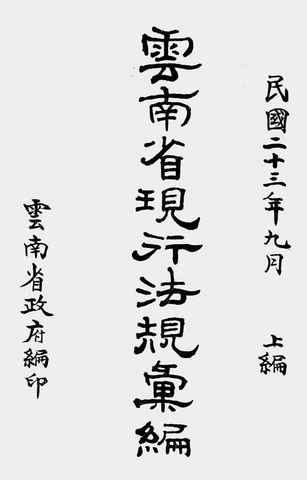 民國二十三年九月
上編
雲南省現行法規彙編
雲南省政府編印